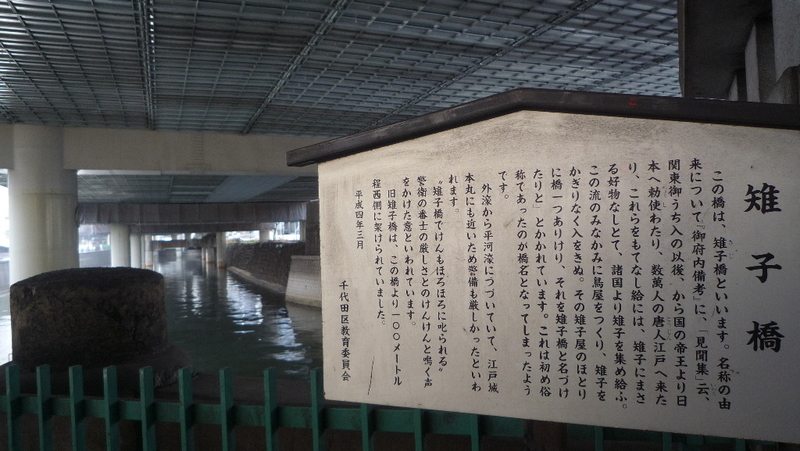 雉子橋
この橋は、雉子橋といいます。名称の由
来について「御府内備考」に、「見聞集」云、
関東御うち入の以後、から国の帝王より日
本へ勅使わたり、数萬人の唐人江戸へ来た
り、これらをもてなし給には、雉子にまさ
る好物なしとて、諸国より雉子を集め給ふ。
この流のみなかみに鳥屋をつくり、雉子を
かぎりなく入をきぬ。その雉子屋のほとり
に橋一つありけり、それを雉子橋と名づけ
たりと」とかかれています。これは初め俗
称であったのが橋名となってしまったよう
です。
外濠から平河濠につづいていて、江戸城
本丸にも近いため警備も厳しかったといわ
れます。
〝雉子橋でけんもほろほろに叱られる〟
警衛の番士の厳しさとのけんけんと鳴く声
をかけた意といわれています。
旧雉子橋は、この橋より一〇〇メートル
程西側に架けられていました。
平成四年三月
千代田区教育委員会